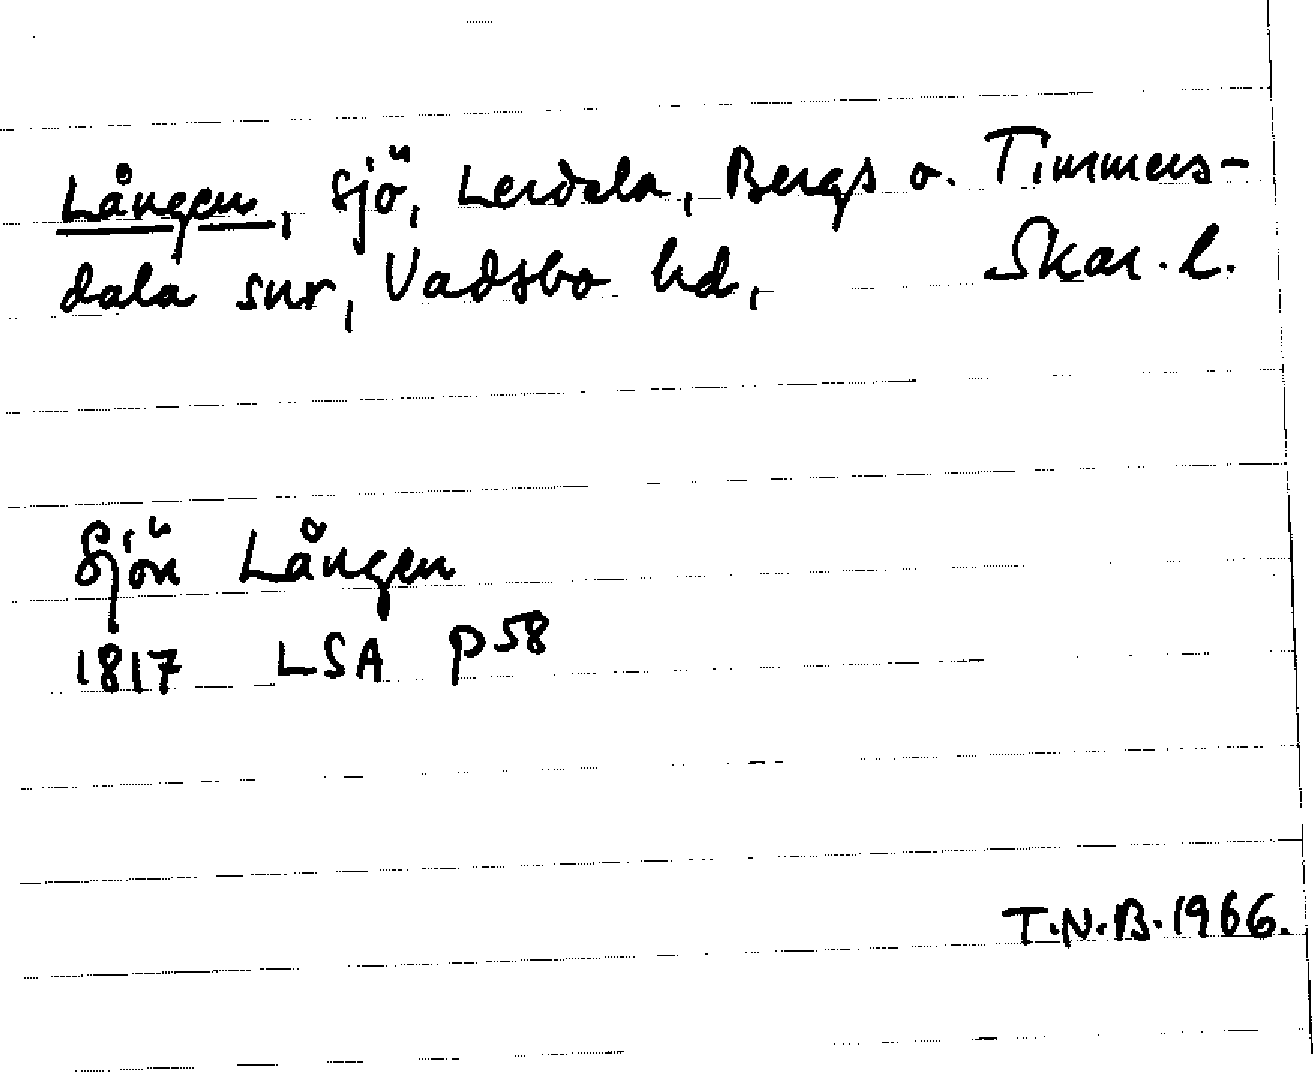 Lången, sjö, Lerdala, Bergs o. Timmers-
dala snr, Vadsbo hd, Skar. l.
Sjön Lången
1817 LSA P 58
T.N.B. 1966.